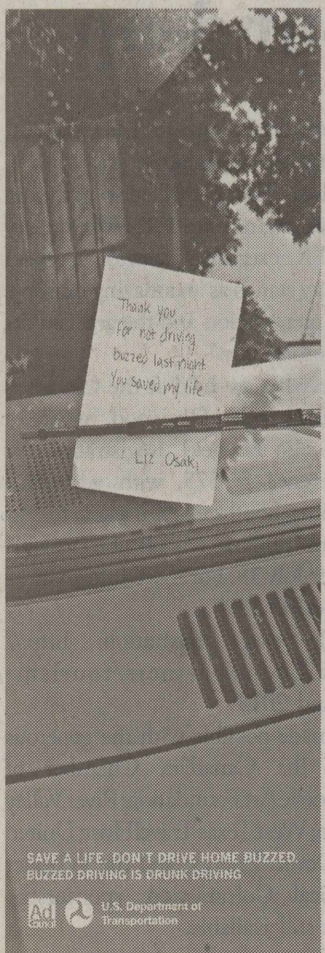 Thank you
for not driving
buzzed last night
You saved my life
Liz Osaki
SAVE A LIFE. DON'T DRIVE HOME BUZZED.
BUZZED DRIVING IS DRUNK DRIVING
Ad
COUNCIL
U.S. Department of
Transportation